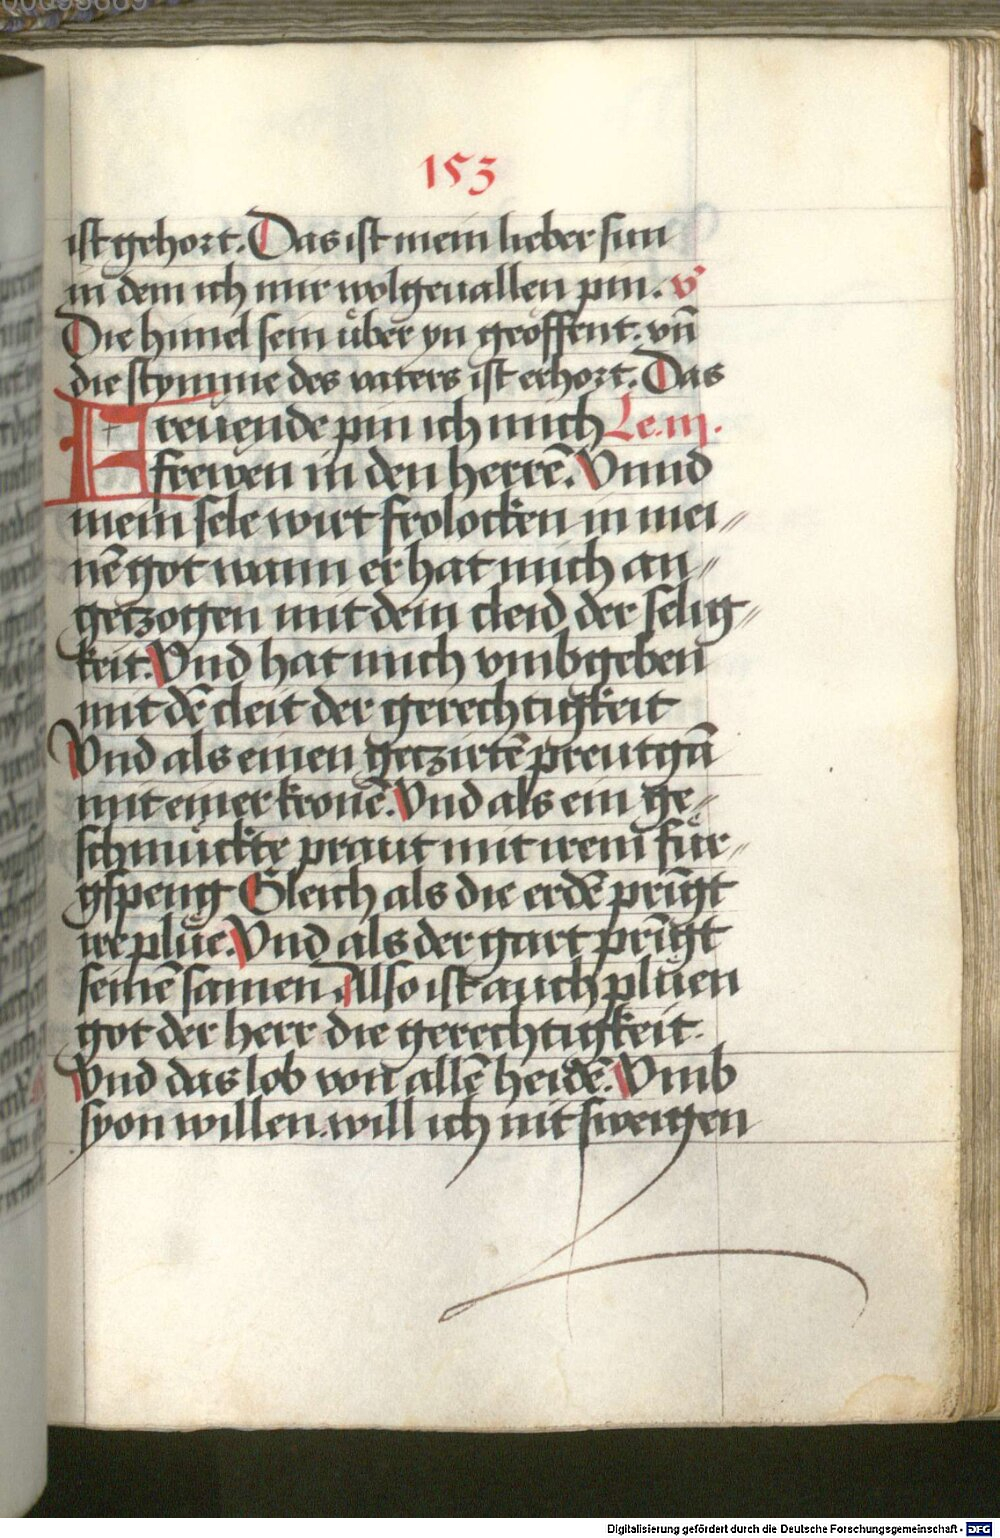 153
ist gehort. Das ist mein lieber sun
in dem ich mir wolgeuallen pin. v̕
Die himel sein u̇ber yn geoffent. vn̄
die stymme des vaters ist erhort. Das
Freuende pin ich mich Le. iij.
frewen in den herrē. Vnnd
mein sele wirt frolocken in mei⸗
nē got wann er hat mich an⸗
getzogen mit dem cleid der selig⸗
keit. Vnd hat mich vmbgeben
mit dē cleit der gerechtigkeit
Vnd als einen getzirtē preutgā
mit einer kronē. Vnd als ein ge⸗
schmückte praut mit irem für⸗
gspeng Gleich als die erdē prīgt
ir plüe. Vnd als der gart prīgt
seinē samen. Also ist auch plüen
got der herr die gerechtigkeit.
Vnd das lob von allē heidē. Vmb
syon willen. will ich nit sweigen
Digitalisierung gefördert durch die Deutsche Forschungsgemeinschaft - DFG